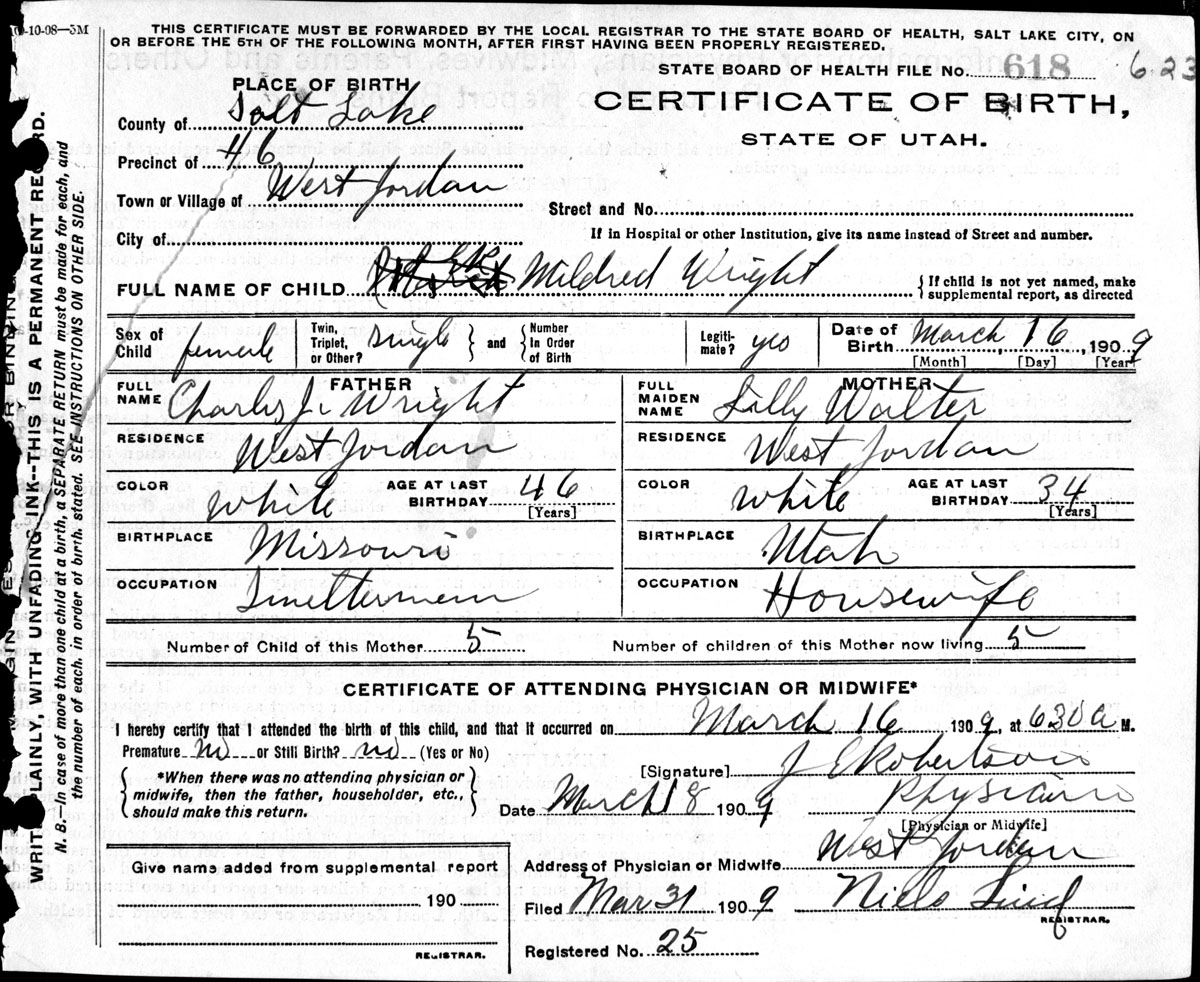 O-10-08—5M
THIS CERTIFICATE MUST BE FORWARDED BY THE LOCAL REGISTRAR TO THE STATE BOARD OF HEALTH, SALT LAKE CITY, ON
OR BEFORE THE 5TH OF THE FOLLOWING MONTH, AFTER FIRST HAVING BEEN PROPERLY REGISTERED.
STATE BOARD OF HEALTH FILE No. 618 6.23
PLACE OF BIRTH
CERTIFICATE OF BIRTH,
STATE OF UTAH.
County of Salt Lake
Precinct of 46
Town or Village of West Jordan
Street and No.
City of
If in Hospital or other Institution, give its name instead of Street and number.
FULL NAME OF CHILD Mildred Wright
{If child is not yet named, make
supplemental report, as directed
Sex of Child female
Twin, Triplet, or Other? single } and { Number In Order of Birth
Legiti-mate? yes
Date of Birth March, 16, 1909
[Month] [Day] [Year]
FATHER
FULL NAME Charles J. Wright
RESIDENCE West Jordan
COLOR white AGE AT LAST BIRTHDAY 46 [Years]
BIRTHPLACE Missouri
OCCUPATION Smelterman
MOTHER
FULL MAIDEN NAME Lilly Walter
RESIDENCE West Jordan
COLOR white AGE AT LAST BIRTHDAY 34 [Years]
BIRTHPLACE Utah
OCCUPATION Housewife
Number of Child of this Mother 5 Number of children of this Mother now living 5
CERTIFICATE OF ATTENDING PHYSICIAN OR MIDWIFE*
I hereby certify that I attended the birth of this child, and that it occurred on March 16 1909, at 630 A M.
Premature no or Still Birth? no (Yes or No)
{*When there was no attending physician or
midwife, then the father, householder, etc.,
should make this return.}
[Signature] J E Robertson
Date March 18 1909 Physician
[Physician or Midwife]
Address of Physician or Midwife West Jordan
Give name added from supplemental report
190
REGISTRAR.
Filed Mar 31 1909 Niels Lind
REGISTRAR.
Registered No. 25
WRITE PLAINLY, WITH UNFADING INK--THIS IS A PERMANENT RECORD.
N. B.—In case of more than one child at a birth, a SEPARATE RETURN must be made for each, and
the number of each, in order of birth, stated. SEE INSTRUCTIONS ON OTHER SIDE.